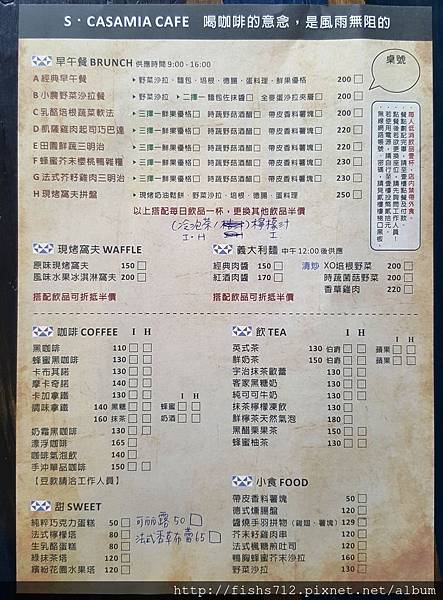 S．CASAMIA CAFE 喝咖啡的意念，是風雨無阻的
早午餐 BRUNCH 供應時間 9:00 - 16:00
桌號
A 經典早午餐 ▸野菜沙拉、麵包、培根、德腸、蛋料理、鮮果優格 200
B 小農野菜沙拉餐 ▸野菜沙拉 二擇一 麵包佐抹醬 全麥蛋沙拉夾層 200
C 乳酪培根蔬菜軟法 ▸三擇一 鮮果優格 時蔬野菇酒醋 帶皮香料薯塊 200
D 凱薩雞肉起司巧巴達 ▸三擇一 鮮果優格 時蔬野菇酒醋 帶皮香料薯塊 200
E 田園鮮蔬三明治 ▸三擇一 鮮果優格 時蔬野菇酒醋 帶皮香料薯塊 200
F 蜂蜜芥末櫻桃鴨雜糧 ▸三擇一 鮮果優格 時蔬野菇酒醋 帶皮香料薯塊 200
G 法式芥籽雞肉三明治 ▸三擇一 鮮果優格 時蔬野菇酒醋 帶皮香料薯塊 200
H 現烤窩夫拼盤 現烤奶油鬆餅、野菜沙拉、培根、德腸、蛋料理 250
以上搭配每日飲品一杯，更換其他飲品半價
(冷泡茶/ )檸檬汁
I．H I
現烤窩夫 WAFFLE
原味現烤窩夫 150
風味水果冰淇淋窩夫 200
搭配飲品可折抵半價
義大利麵 中午 12:00 後供應
經典肉醬 150
紅酒肉醬 170
清炒 XO培根野菜 200
時蔬菌菇野菜 200
香草雞肉 220
搭配飲品可折抵半價
咖啡 COFFEE I H
黑咖啡 110
蜂蜜黑咖啡 130
卡布其諾 130
摩卡奇諾 140
卡加拿鐵 130
I H
調味拿鐵 140 黑糖 蜂蜜
160 抹茶 奶酒
奶霜黑咖啡 130
漂浮咖啡 165
咖啡氣泡飲 140
手沖單品咖啡 150
【豆款請洽工作人員】
飲 TEA I H I H
英式茶 130 伯爵 蘋果
鮮奶茶 150 伯爵 蘋果
宇治抹茶歐蕾 130
客家黑糖奶 130
純可可牛奶 130
抹茶檸檬凍飲 130
鮮檸茶天然氣泡 180
黑醋栗果茶 150
蜂蜜柚茶 130
甜 SWEET
純粹巧克力蛋糕 50
法式檸檬塔 80
生乳酪蛋糕 80
綠抹茶塔 120
繽紛花園水果塔 120
可麗露 50
法式香草布蕾 65
小食 FOOD
帶皮香料薯塊 50
德式燻腸盤 120
醬燒手羽拼物（雞翅、雞塊） 129
芥末籽雞肉串 120
法式楓糖煎吐司 120
鴨胸蜂蜜芥末沙拉 160
野菜沙拉 130
http://fishs712.pixnet.net/album/